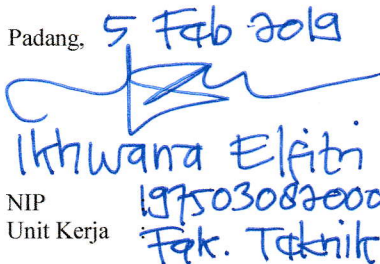 Padang, 5 Feb 2019
Ikhwana Elfitri
NIP 197503082000
Unit Kerja : Fak. Teknik